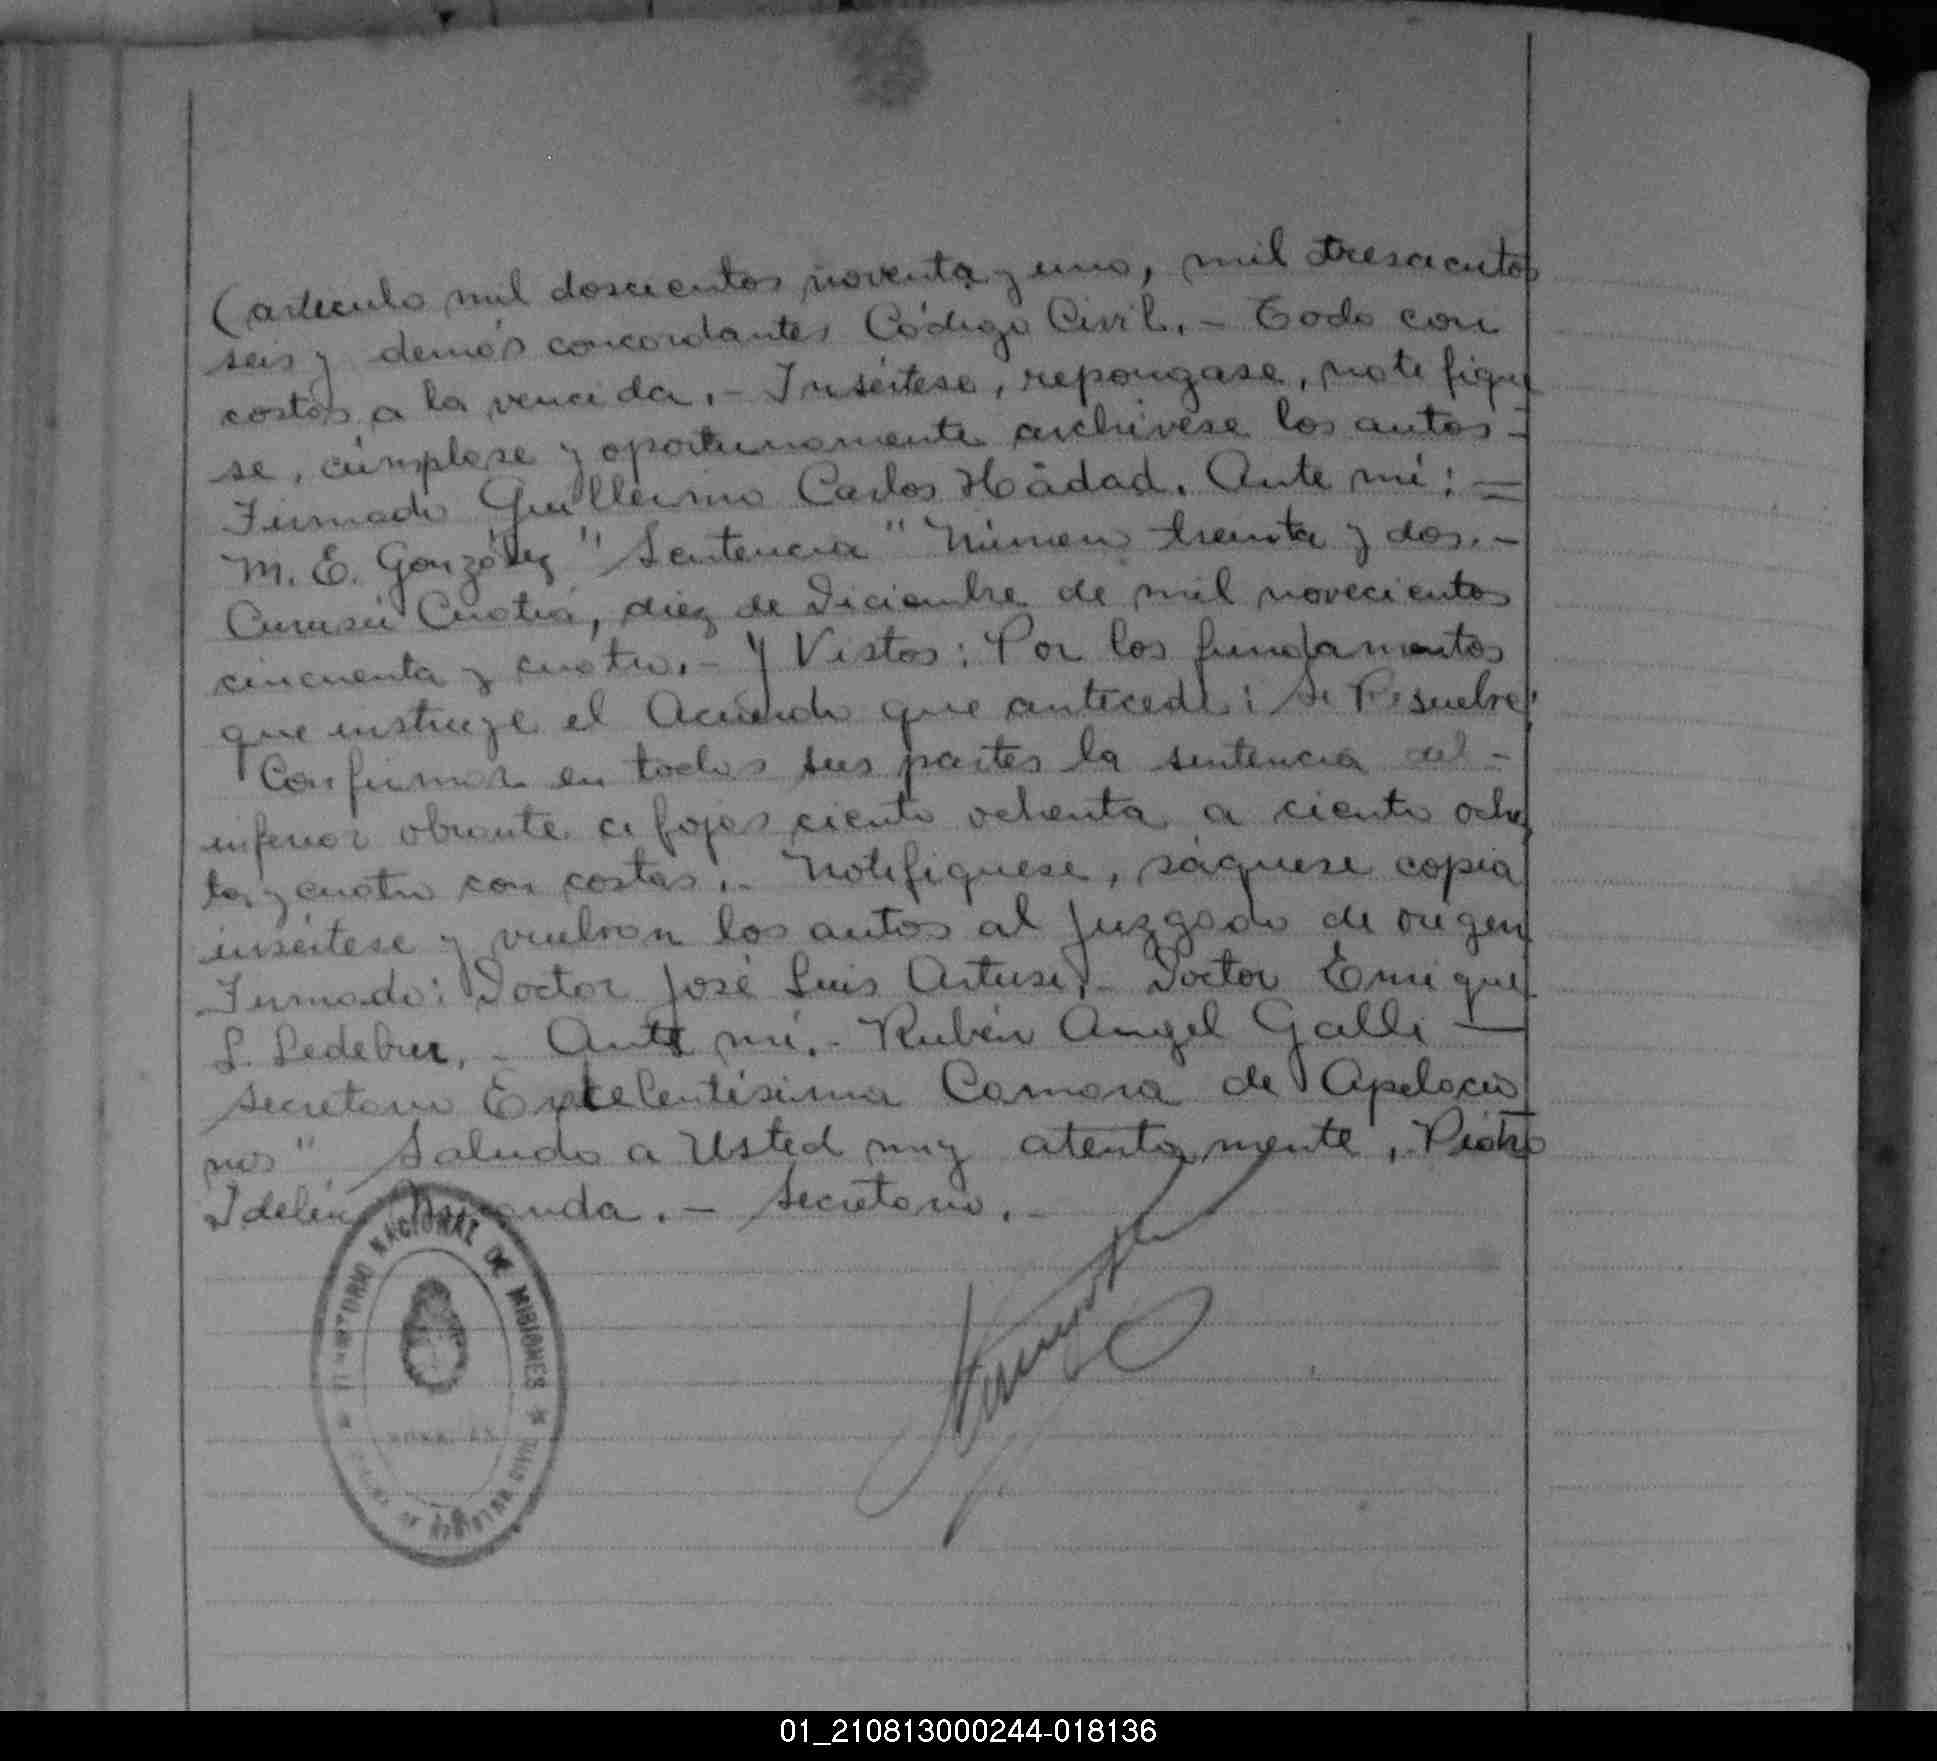 (artículo mil doscientos noventa y uno, mil trescientos
seis y demás concordantes Código Civil.- Todo con
costas a la vencida.- Insértese, repóngase, notifíque
se, cúmplase y oportunamente archívese los autos -
Firmado Guillermo Carlos Hádad. Ante mí: =
M. E. González" "Sentencia" Número treinta y dos.-
Curuzú Cuatiá, diez de Diciembre de mil novecientos
cincuenta y cuatro.- Y Vistos: Por los fundamentos
que instruye el Acuerdo que antecede: Se Resuelve:
Confirmar en todas sus partes la sentencia del -
inferior obrante a fojas ciento ochenta a ciento ochen
ta y cuatro con costas.- Notifíquese, sáquese copia
insértese y vuelvan los autos al Juzgado de origen
Firmado: Doctor José Luis Artusi.- Doctor Enrique
S. Ledebur.- Ante mí.- Rubén Angel Galli —
Secretario Excelentísima Camara de Apelacio
nes" Saludo a Usted muy atentamente, Pedro
Secretario.-
TERRITORIO NACIONAL DE MISIONES
REGISTRO CIVIL
01_210813000244-018136